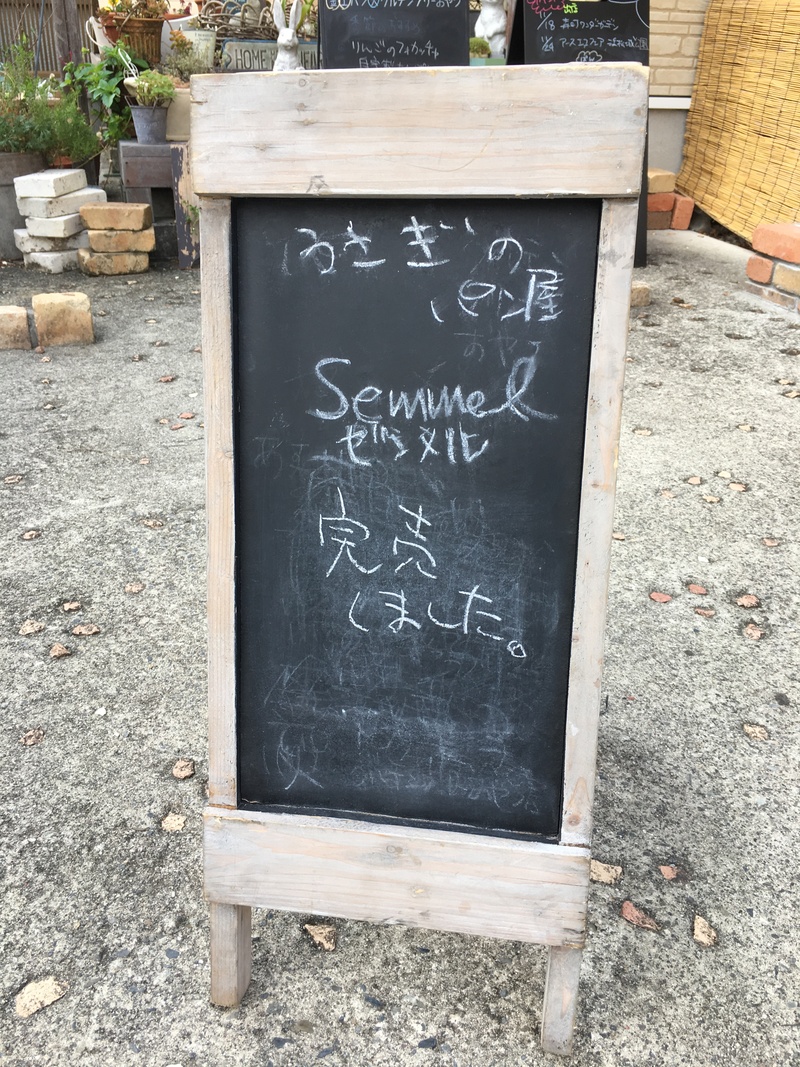 りんごのフォカッチャ
うさぎの
パン屋
Semmel
ゼンメル
完売
しました。